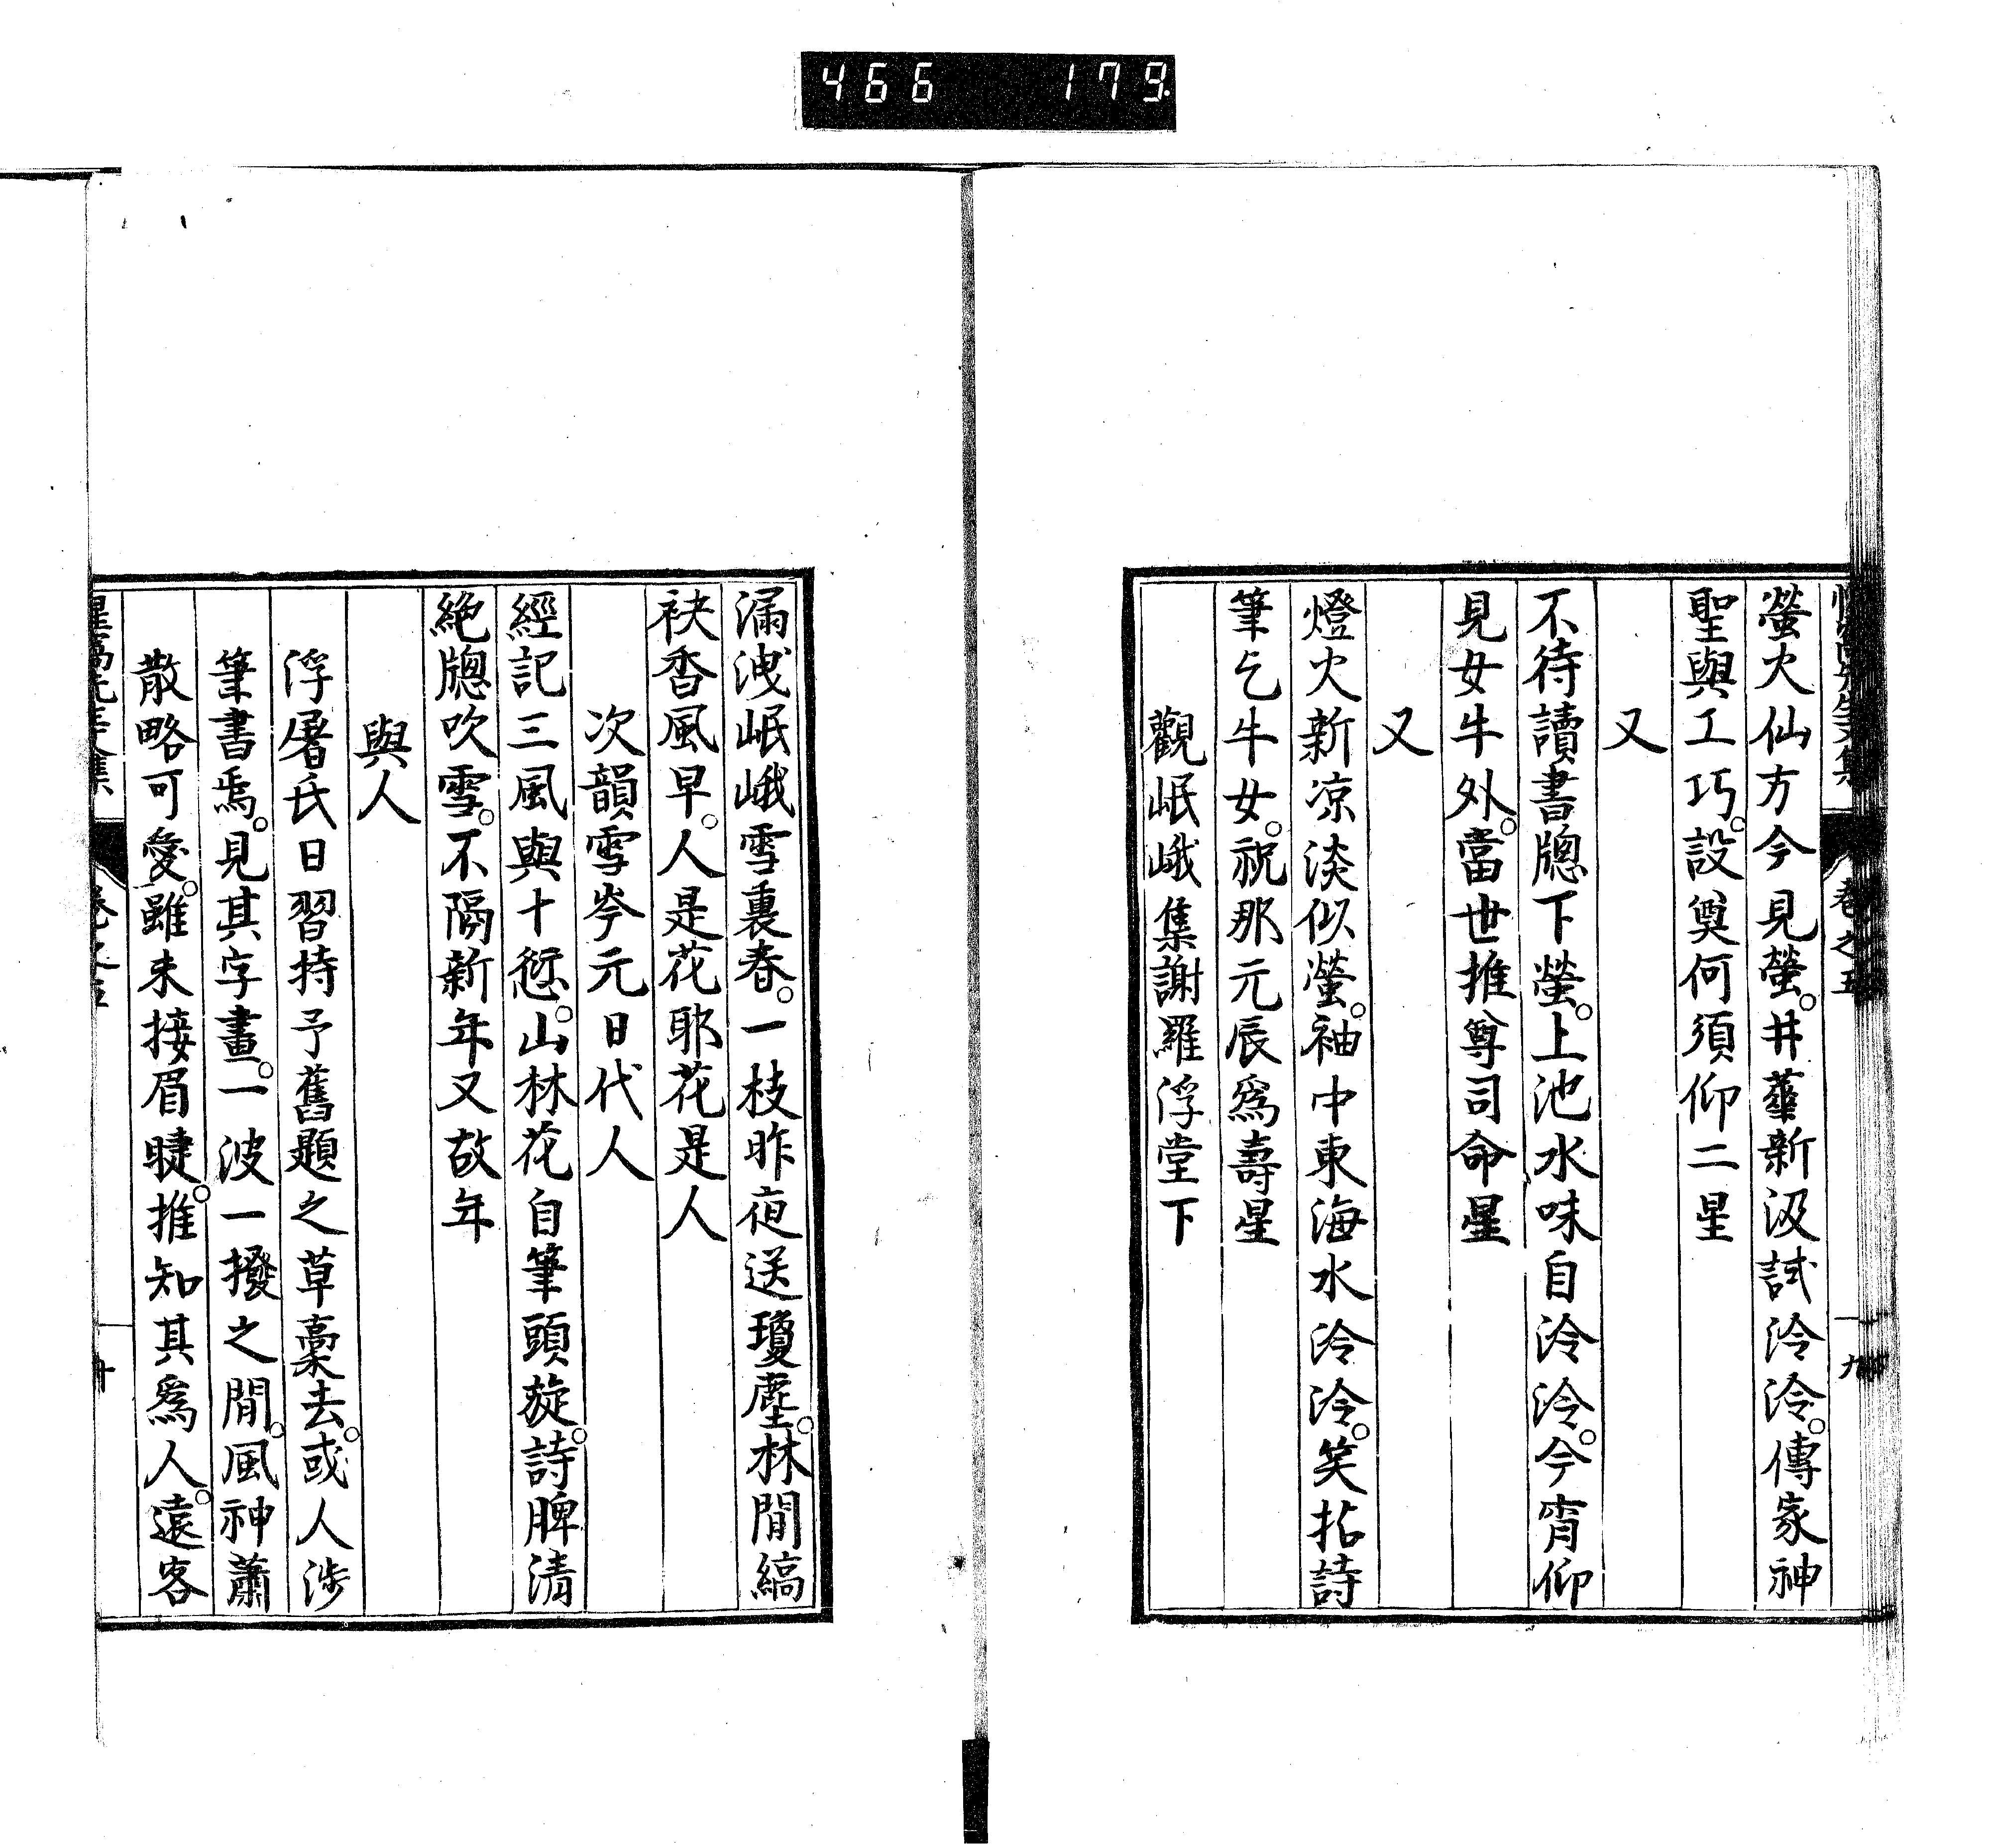 466 179
螢火仙方今見螢。井華新汲試泠泠。傳家神
聖與工巧。設奠何須仰二星
又
不待讀書牕下螢。上池水味自泠泠。今宵仰
見女牛外。當世推尊司命星
又
燈火新凉淡似螢。袖中東海水泠泠。笑拈詩
筆乞牛女。祝那元辰爲壽星
觀岷峨集謝羅浮堂下
漏洩岷峨雪裏春。一枝昨夜送瓊塵。林間縞
袂香風早。人是花耶花是人
次韻雪岑元日代人
經記三風與十愆。山林花自筆頭旋。詩脾清
絶牕吹雪。不隔新年又故年
與人
浮屠氏日習持予舊題之草藁去。或人涉
筆書焉。見其字畫。一波一撥之間。風神蕭
散略可愛。雖未接眉睫。推知其爲人。遠客